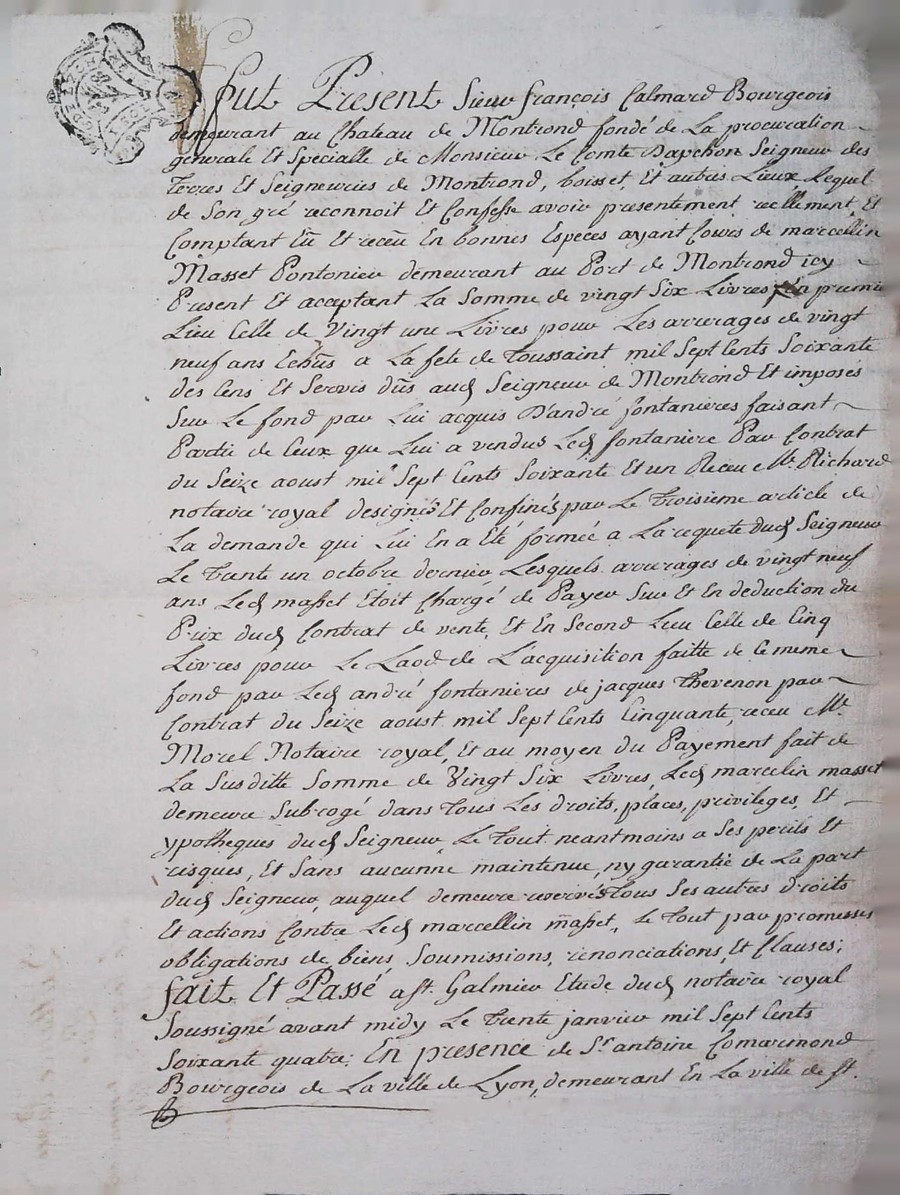 fut Present Sieur françois Calmard Bourgeois
demeurant au Chateau de Montrond fondé de La procuration
generale Et Specialle de Monsieur Le Comte Dapchon Seigneur des
Terres Et Seigneuries de Montrond, boisset, Et autres Lieux Lequel
de Son gré reconnoit Et Confesse avoir presentement reellement Et
Comptant Eü Et receu En bonnes Especes ayant Cours de marcellin
Masset Pontonier demeurant au Port de Montrond icy
Present Et acceptant La Somme de vingt Six Livres En premier
Lieu Celle de Vingt une Livres pour Les arrerages de vingt
neuf ans Echûs a La fete de Toussaint mil Sept Cents Soixante
des Cens Et Servis dûs aud Seigneur de Montrond Et imposés
Sur Le fond par Lui acquis D'andré fontanieres faisant
Partie de Ceux que Lui a vendus Led fontaniere Par Contrat
du Seize aoust mil Sept Cents Soixante Et un Receu Me. Richard
notaire royal designés Et Confinés par Le Troisieme article de
La demande qui Lui En a Eté formée a La requete dud Seigneur
Le Trente un octobre dernier Lesquels arrerages de vingt neuf
ans Led masset Etoit Chargé de Payer Sur Et En deduction du
Prix dud Contrat de vente, Et En Second Lieu Celle de Cinq
Livres pour Le Laod de L'acquisition faitte de Ce meme
fond par Led andré fontanieres de jacques Thevenon par
Contrat du Seize aoust mil Sept Cents Cinquante, receu Me.
Morel Notaire royal, Et au moyen du Payement fait de
La Susditte Somme de Vingt Six Livres, Led marcelin masset
demeure Subrogé dans Tous Les droits, places, privileges, Et
ypotheques dud Seigneur, Le Tout neantmoins a Ses perils Et
risques, Et Sans aucunne maintenue, ny garantie de La part
dud Seigneur, auquel demeure reservés Tous Ses autres droits
Et actions Contre Led marcellin masset, Le Tout par promesses
obligations de biens, Soumissions, renonciations, Et Clauses;
fait Et Passé a St. Galmier Etude dud notaire royal
Soussigné avant midy Le Trente janvier mil Sept Cents
Soixante quatre. En presence de Sr. antoine Comarmond
Bourgeois de La ville de Lyon, demeurant En La ville de St.